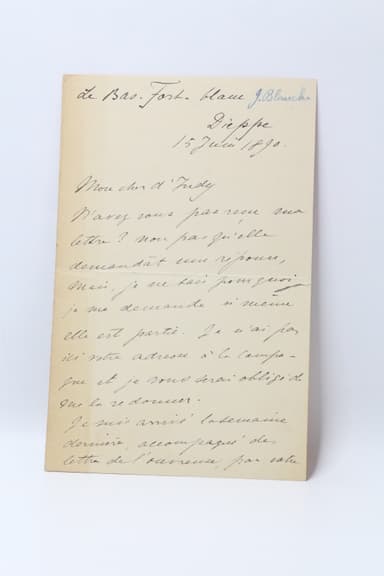 Le Bas-Fort-blanc J. Blanche
Dieppe
15 Juin 1890.
Mon cher d'Indy
N'avez vous pas reçu ma
lettre ? non pas qu'elle
demandât une réponse,
mais, je ne sais pourquoi
je me demande si même
elle est partie. Je n'ai pas
ici votre adresse à la campa-
gne et je vous serai obligé de
me la redonner.
Je suis arrivé la semaine
dernière, accompagné des
lettre de l'ouvreuse, par votre